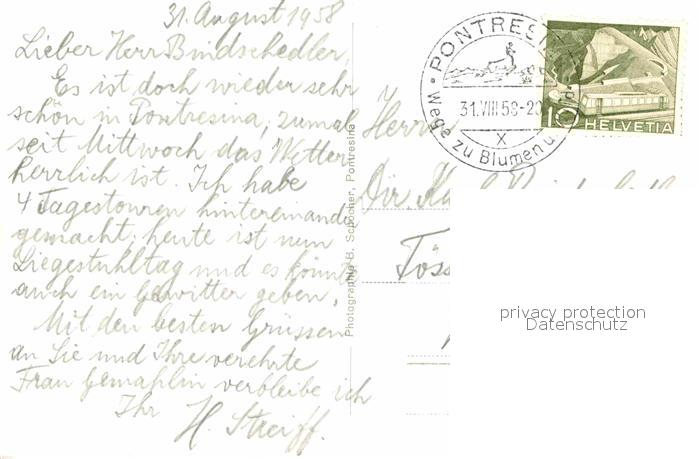 31. August 1958
Lieber Herr Bindschedler,
Es ist doch wieder sehr
schön in Pontresina, zumal
seit Mittwoch das Wetter
herrlich ist. Ich habe
4 Tagestouren hintereinander
gemacht, heute ist nun
Liegestuhltag und es könnte
auch ein Gewitter geben.
Mit den besten Grüssen
an Sie und Ihre verehrte
Frau Gemahlin verbleibe ich
Ihr H. Streiff.
Photographie B. Schocher, Pontresina
PONTRESINA
31.VIII 58-20
X
Wege zu Blumen u.
10 HELVETIA
Herrn
Dir.
Töss
privacy protection
Datenschutz